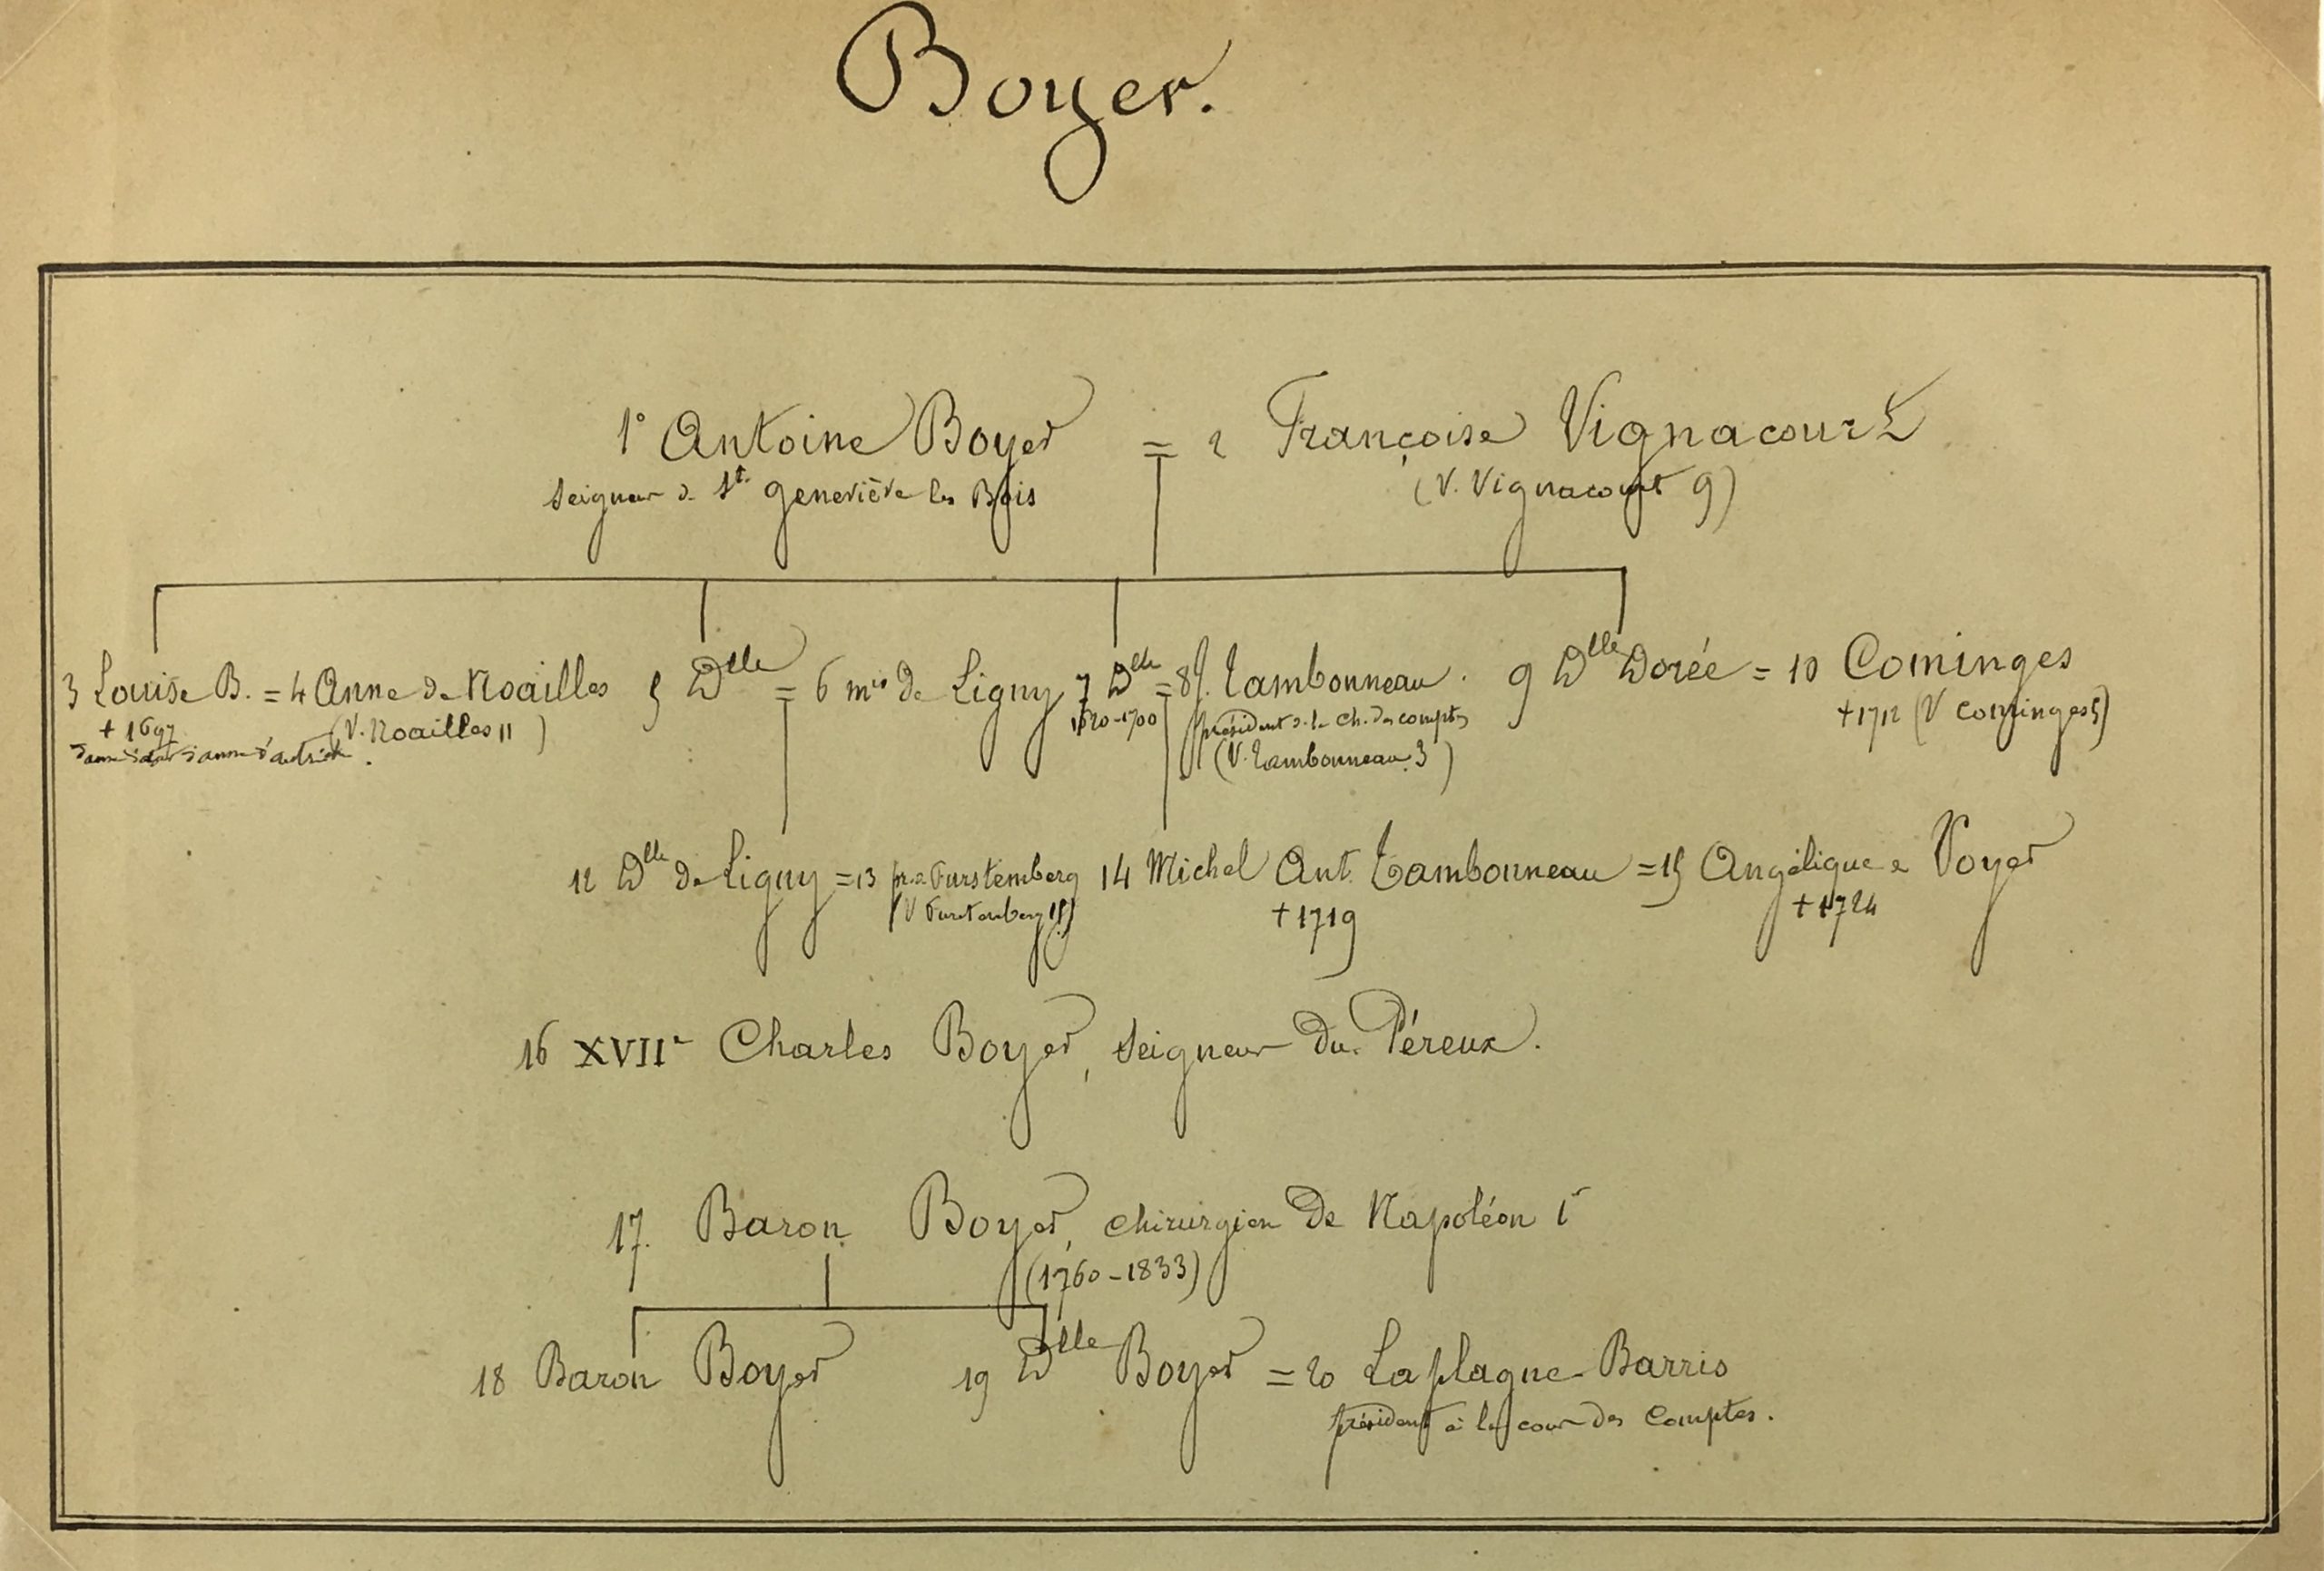 Boyer.
1° Antoine Boyer = 2 Françoise Vignacourt
Seigneur de Ste geneviève les Bois (V. Vignacourt 9)
3 Louise B. = 4 Anne de Noailles 5 Dlle = 6 mis de Ligny 7 Dlle = 8 J. Tambonneau. 9 Dlle Dorée = 10 Cominges
+ 1697 (V. Noailles 11) 1620-1700 président de la Ch. des comptes +1712 (V Cominges 5)
Dame d'atour d'anne d'autriche. (V. Tambonneau 3)
12 Dlle de Ligny = 13 pce Furstemberg 14 Michel Ant. Tambonneau = 15 Angélique e Voyer
(V Furstemberg 15) +1719 +1724
16 XVIIe Charles Boyer, Seigneur du Péreux.
17. Baron Boyer, chirurgien de Napoléon Ier
(1760-1833)
18 Baron Boyer 19 Dlle Boyer = 20 Laplagne-Barris
président à la cour des Comptes.